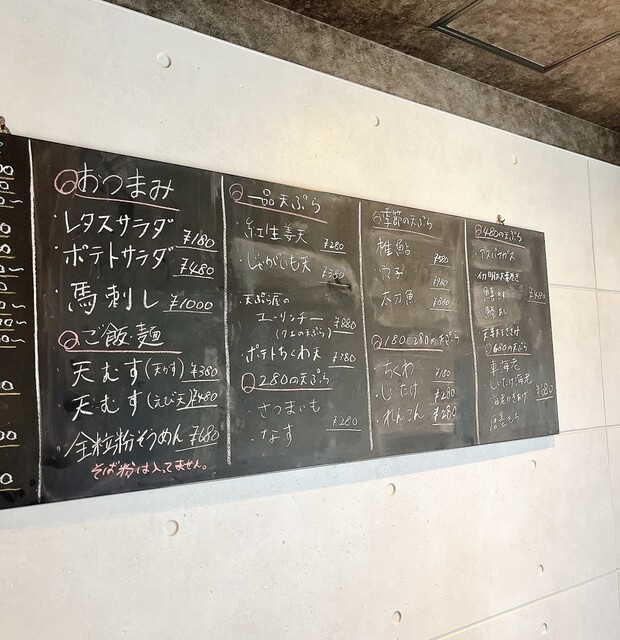 おつまみ
・レタスサラダ ¥180
・ポテトサラダ ¥480
・馬刺し ¥1000
ご飯・麺
・天むす(天かす) ¥380
・天むす(えび天) ¥480
・全粒粉そうめん ¥680
そば粉は入ってません。
一品天ぷら
・紅生姜天 ¥280
・じゃがしも天 ¥380
・天ぷら涯の
ユーリンチー ¥880
・ポテトちくわ天 ¥780
280の天ぷら
・さつまいも
・なす ¥280
季節の天ぷら
・稚鮎 ¥580
・穴子 ¥980
・太刀魚
180と280の天ぷら
・ちくわ ¥180
・しいたけ ¥280
・れんこん ¥280
480の天ぷら
アスパラガス
¥480
680の天ぷら
車海老
しいたけ海老
¥680